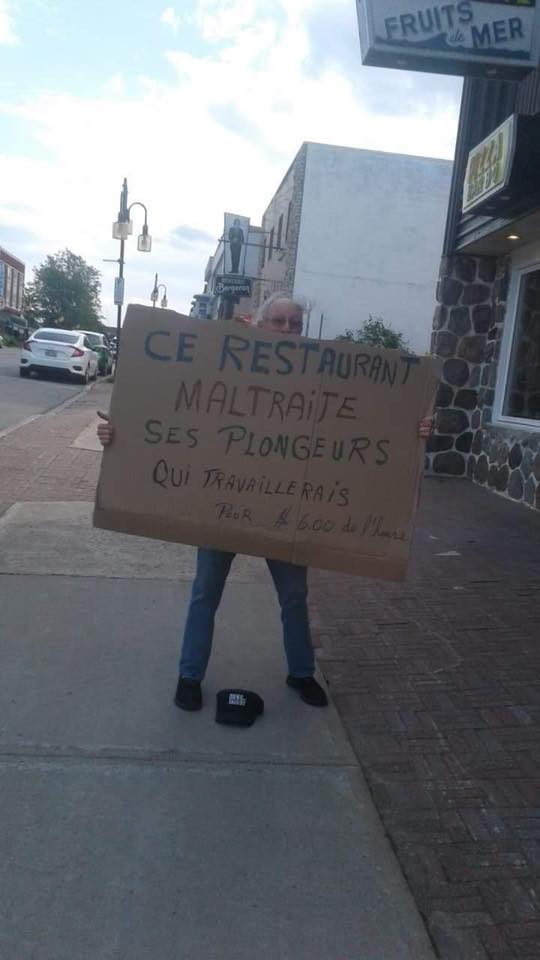 FRUITS
de MER
Bergeron
CE RESTAURANT
MALTRAITE
SES PLONGEURS
QUI TRAVAILLERAIS
POUR $ 6.00 de l'heure